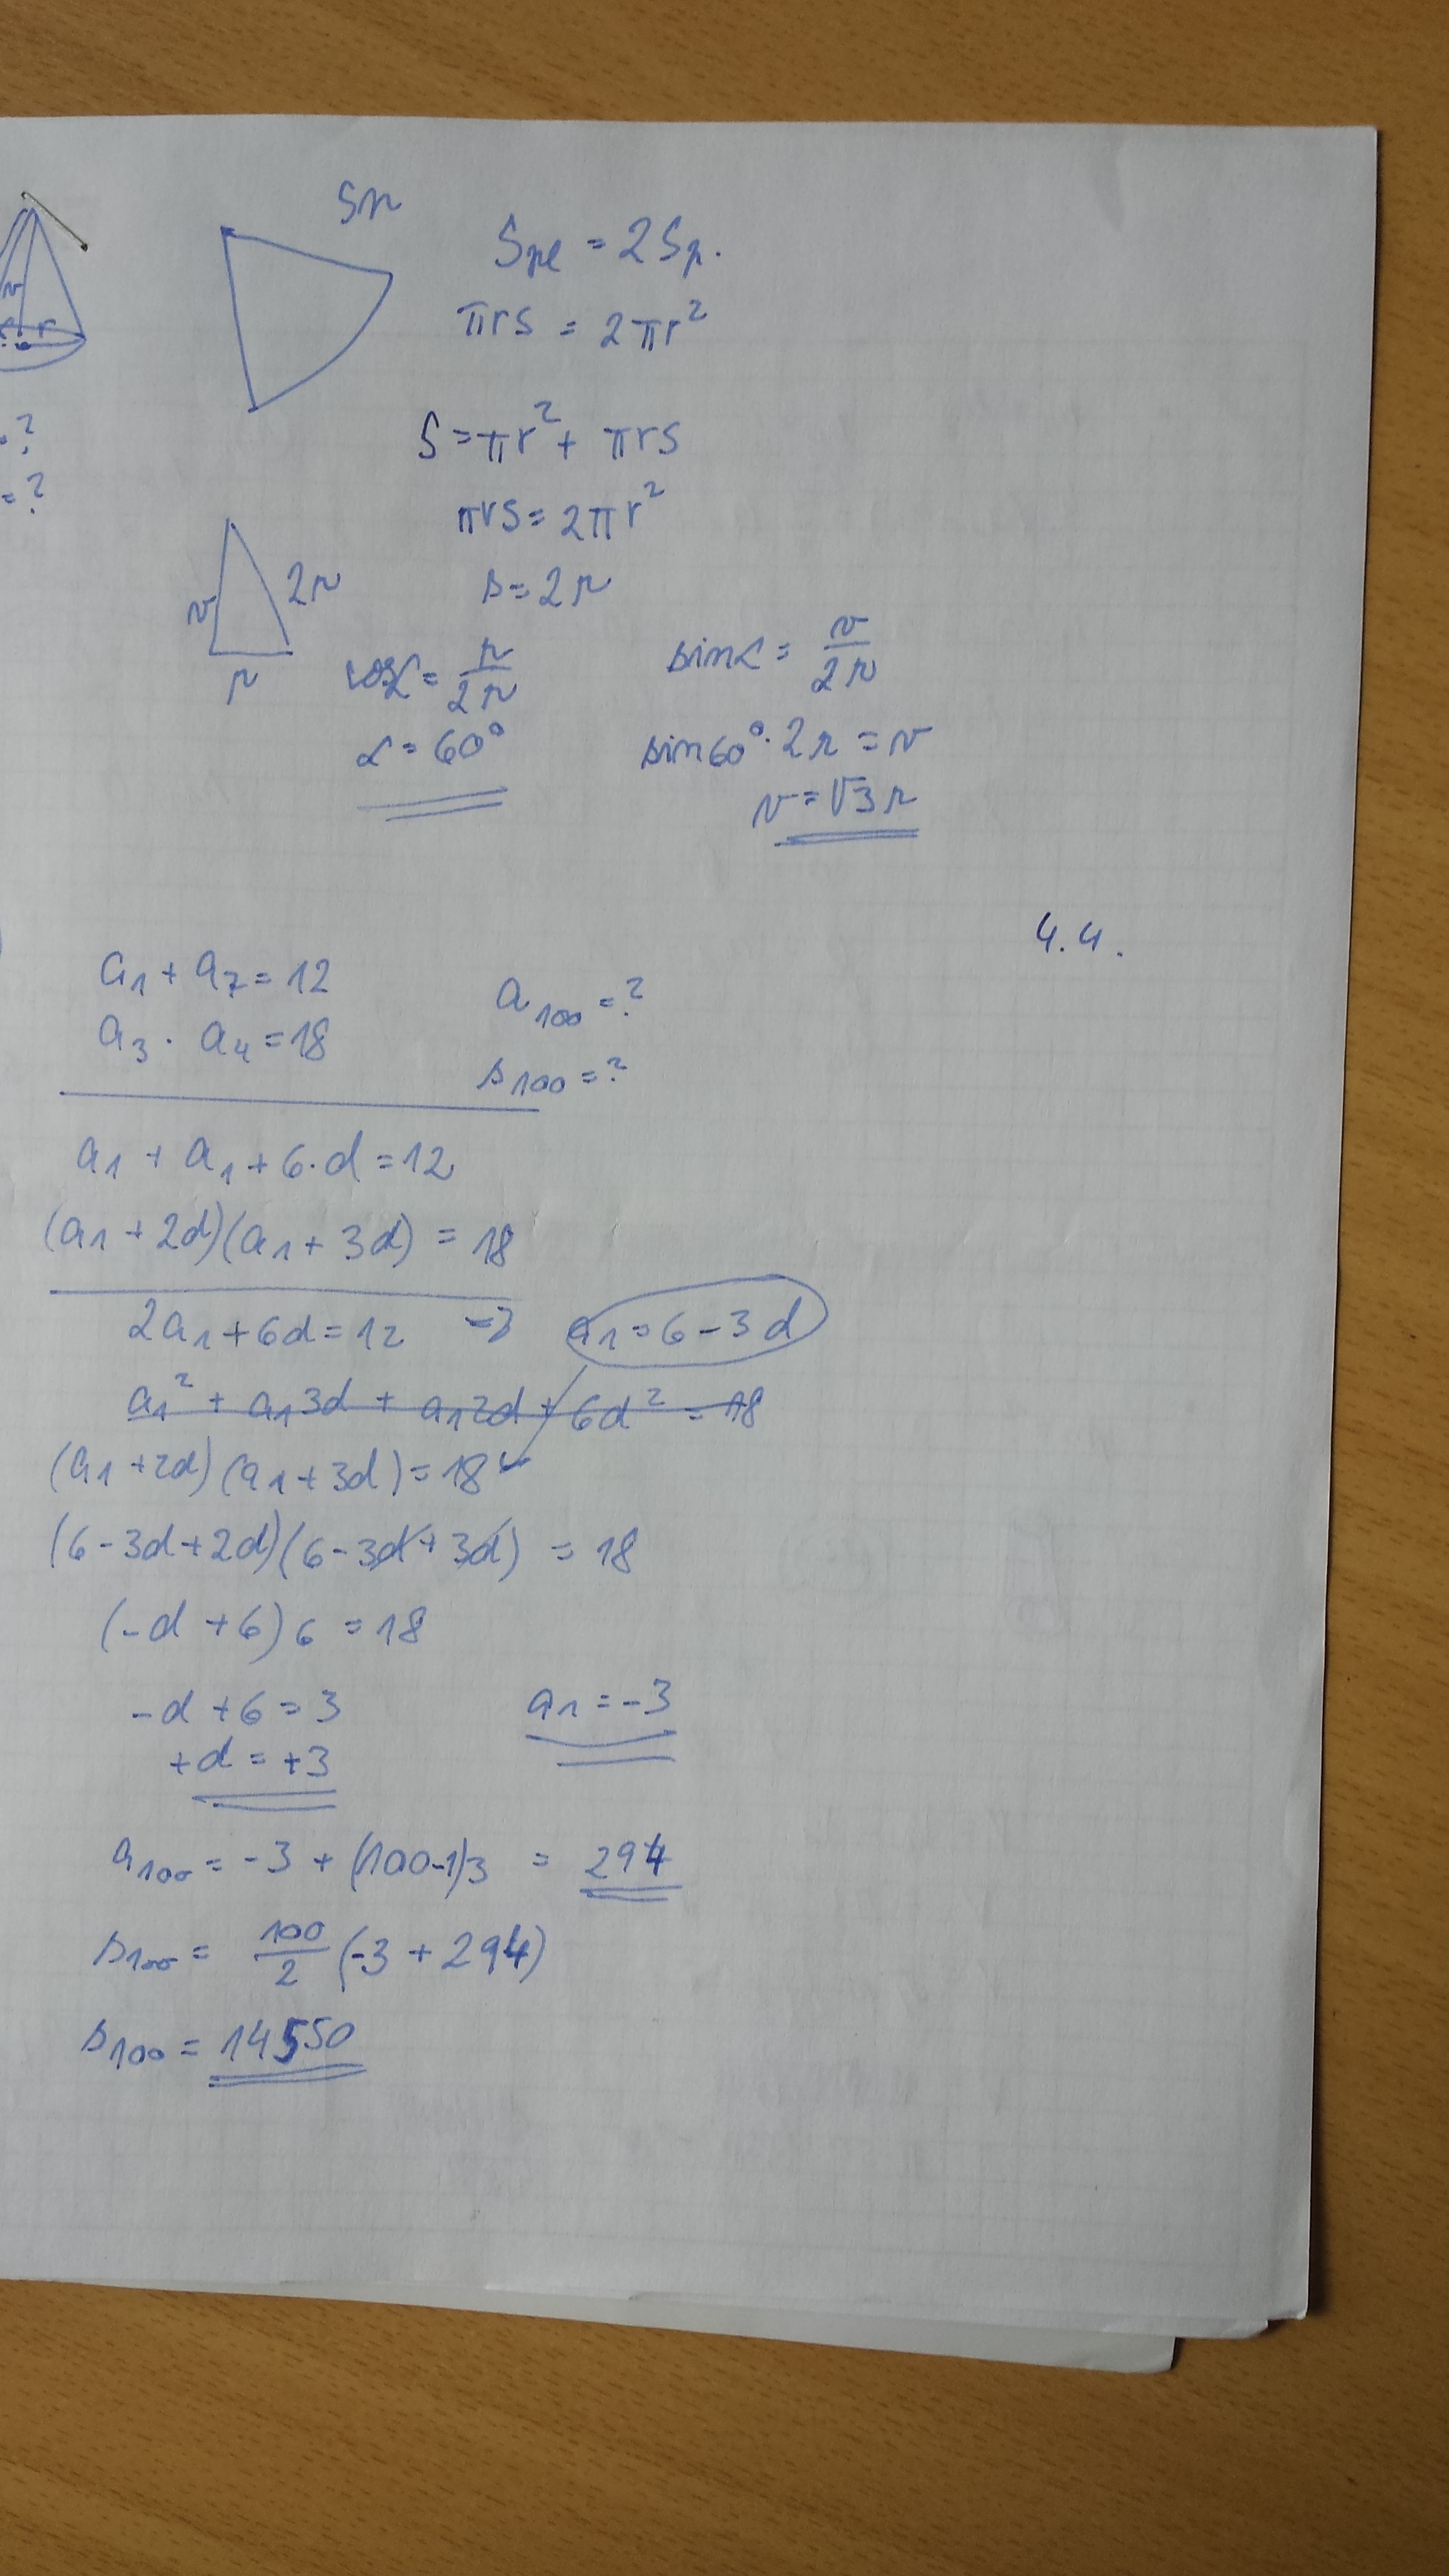 Sr
Spl = 2Sp.
πrs = 2πr²
v
r
= ?
= ?
S = πr² + πrs
πrs = 2πr²
s = 2r
v
2r
r
cosα = r/2r
α = 60°
sinα = v/2r
sin60° · 2r = v
v = √3 r
4.4.
a₁ + a₇ = 12
a₁₀₀ = ?
a₃ · a₄ = 18
s₁₀₀ = ?
a₁ + a₁ + 6·d = 12
(a₁ + 2d)(a₁ + 3d) = 18
2a₁ + 6d = 12 => a₁ = 6 - 3d
a₁² + a₁3d + a₁2d + 6d² = 18
(a₁ + 2d)(a₁ + 3d) = 18
(6 - 3d + 2d)(6 - 3d + 3d) = 18
(-d + 6)6 = 18
-d + 6 = 3
a₁ = -3
+d = +3
a₁₀₀ = -3 + (100-1)3 = 294
s₁₀₀ = 100/2 (-3 + 294)
s₁₀₀ = 14550